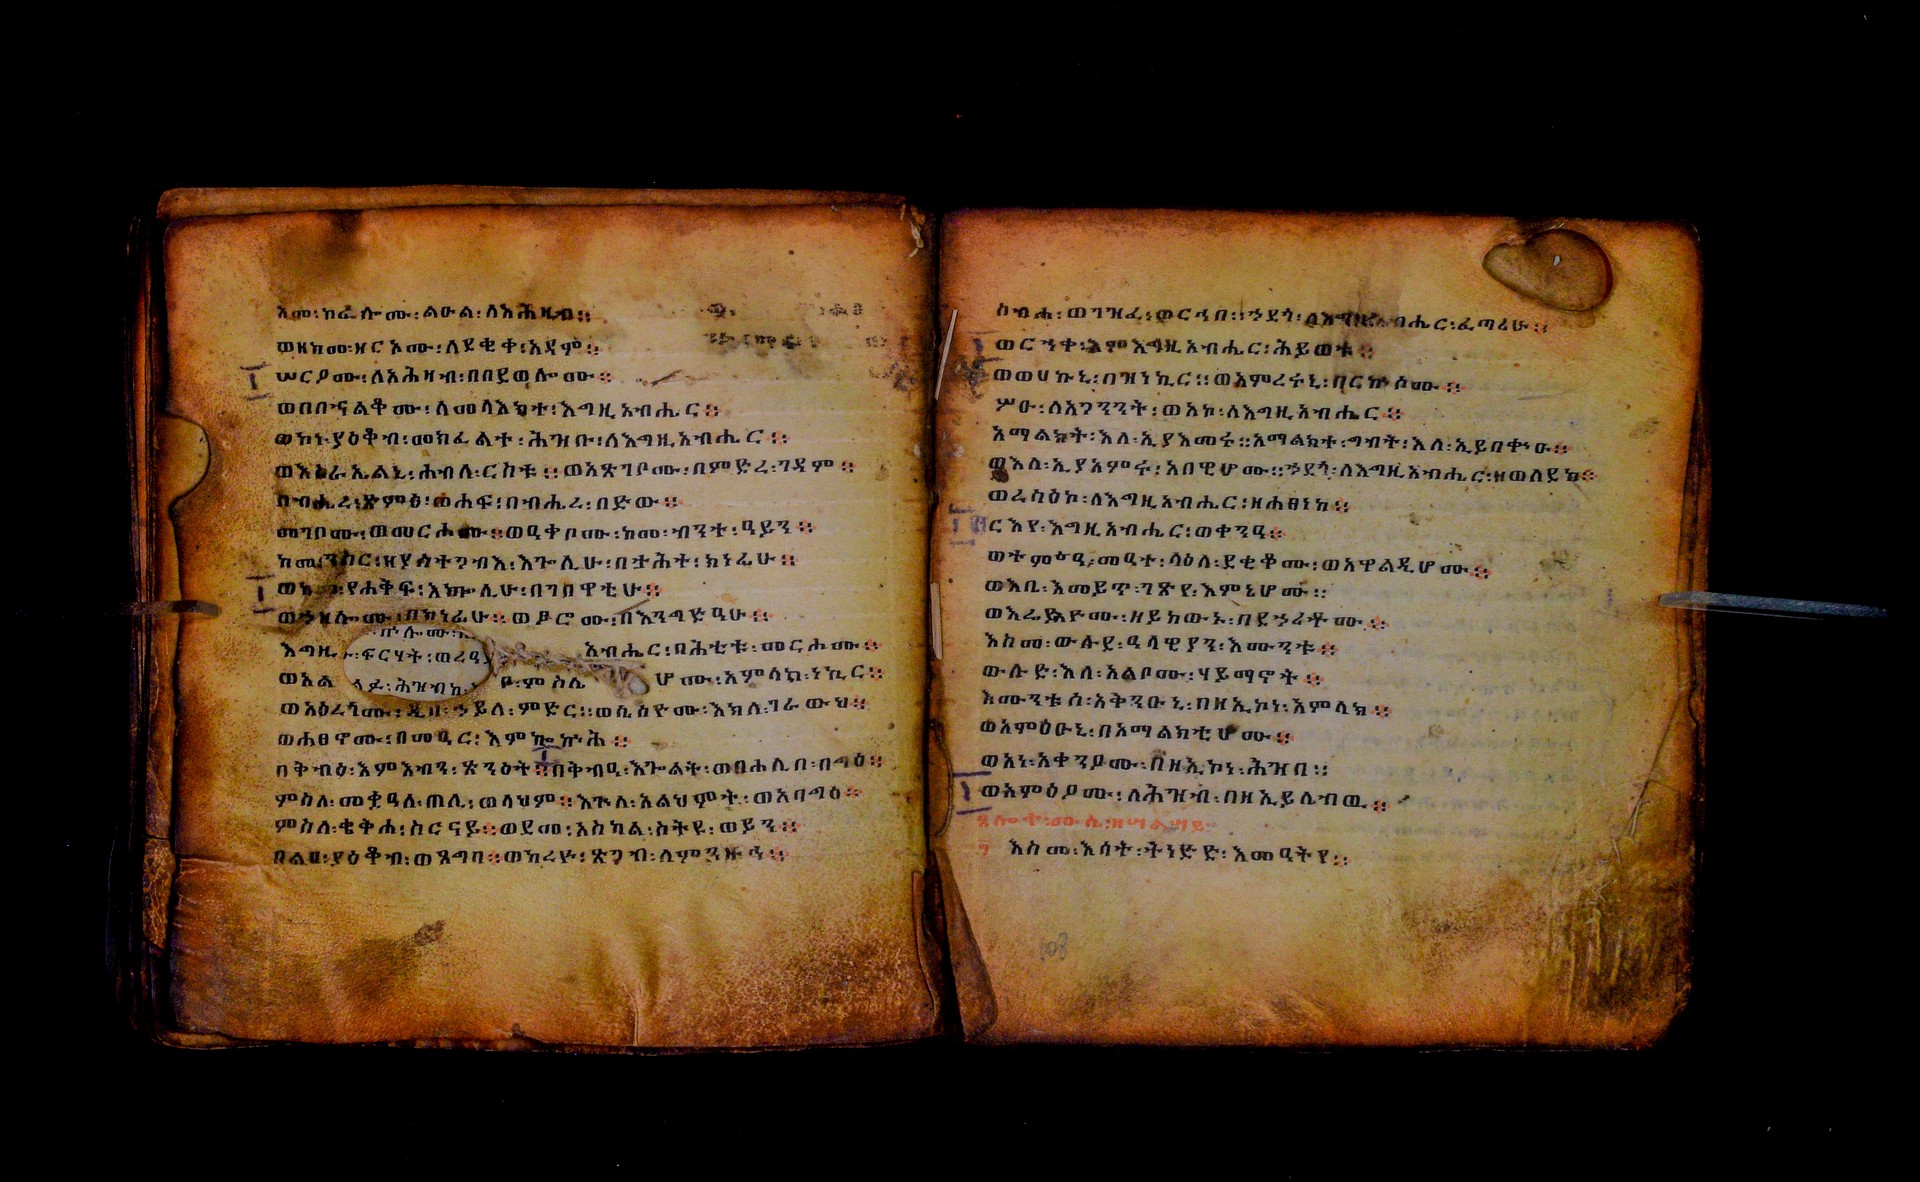 አመ፡ከፈሎሙ፡ልዑል፡ለአሕዛብ፨
ወዘከመ፡ዘርኦሙ፡ለደቂቀ፡አዳም፨
ሠርዖሙ፡ለአሕዛብ፡በበደወሎሙ፨
ወበበኍልቆሙ፡ለመላእክተ፡እግዚአብሔር፨
ወኮኑ፡ያዕቆብ፡መክፈልተ፡ሕዝቡ፡ለእግዚአብሔር፨
ወእስራኤልኒ፡ሕብለ፡ርስቱ፨ወአጽገቦሙ፡በምድረ፡ገዳም፨
በብሔረ፡ጽምዕ፡ወሐፍ፡በብሔረ፡በድው፨
መገቦሙ፡ወመርሖሙ፨ወዐቀቦሙ፡ከመ፡ብንተ፡ዓይን፨
ከመ፡ንስር፡ዘያስተጋብእ፡እጐሊሁ፡በታሕት፡ክነፊሁ፨
የሐቅፍ፡እጐሊሁ፡በገበዋቲሁ፨
ወኀዘሎሙ፡በክነፊሁ፨ወፆሮሙ፡በእንግድዓሁ፨
እግዚ አብሔር፡በሕቲቱ፡መርሖሙ፨
ወአል ምስሌሆሙ፡አምላክ፡ነኪር፨
ወአዕረጎሙ፡ዲበ፡ኃይለ፡ምድር፨ወሴሰዮሙ፡እክለ፡ገራውህ፨
ወሐፀኖሙ፡በመዓር፡እምኰኵሕ፨
በቅብዕ፡እምእብን፡ጽንዕት፨በቅብዐ፡እጐልት፡ወበሐሊበ፡በግዕ፨
ምስለ፡መቋዓለ፡ጠሊ፡ወላህም፨እጐለ፡አልህምት፡ወአባግዕ፨
ምስለ፡ቄቅሐ፡ስርናይ፨ወደመ፡አስካል፡ስትዩ፡ወይን፨
በልዐ፡ያዕቆብ፡ወጸግበ፨ወክረየ፡ጽጋብ፡ለምንዙኅ፨
ስብሐ፡ወገዝፈ፡ወርኅበ፨ኀደጎ፡ለእግዚአብሔር፡ፈጣሪሁ፨
ወርኅቀ፡እምእግዚአብሔር፡ሕይወቱ፨
ወወሀኩኒ፡በዝነኪር፨ወአምረሩኒ፡በርኵሶሙ፨
ሦዑ፡ለአጋንንት፡ወአኮ፡ለእግዚአብሔር፨
አማልክት፡እለ፡ኢያአመሩ፨አማልክተ፡ግብት፡እለ፡ኢይበቍዑ፨
ወእለ፡ኢያአምሩ፡አበዊሆሙ፨ኀደጎ፡ለእግዚአብሔር፡ዘወለደከ፨
ወረስዕኮ፡ለእግዚአብሔር፡ዘሐፀነከ፨
ርእየ፡እግዚአብሔር፡ወቀንዓ፨
ወተምዕዓ፡መዓተ፡ላዕለ፡ደቂቆሙ፡ወአዋልዲሆሙ፨
ወእቤ፡እመይጥ፡ገጽየ፡እምኔሆሙ፨
ወእሬእዮሙ፡ዘይከውኑ፡በደኃሪቶሙ፨
እስመ፡ውሉደ፡ዓላዊያን፡እሙንቱ፨
ውሉድ፡እለ፡አልቦሙ፡ሃይማኖት፨
እሙንቱሰ፡አቅንዑኒ፡በዘኢኮነ፡አምላክ፨
ወአምዕዑኒ፡በአማልክቲሆሙ፨
ወአነ፡አቀንዖሙ፡በዘኢኮነ፡ሕዝበ፨
ወአምዕዖሙ፡ለሕዝብ፡በዘኢይሌብዉ፨
ጸሎተ፡ሙሴ፡ዘሣልሣይ፨
፫ እስመ፡እሳት፡ትነድድ፡እመዓትየ፨
108